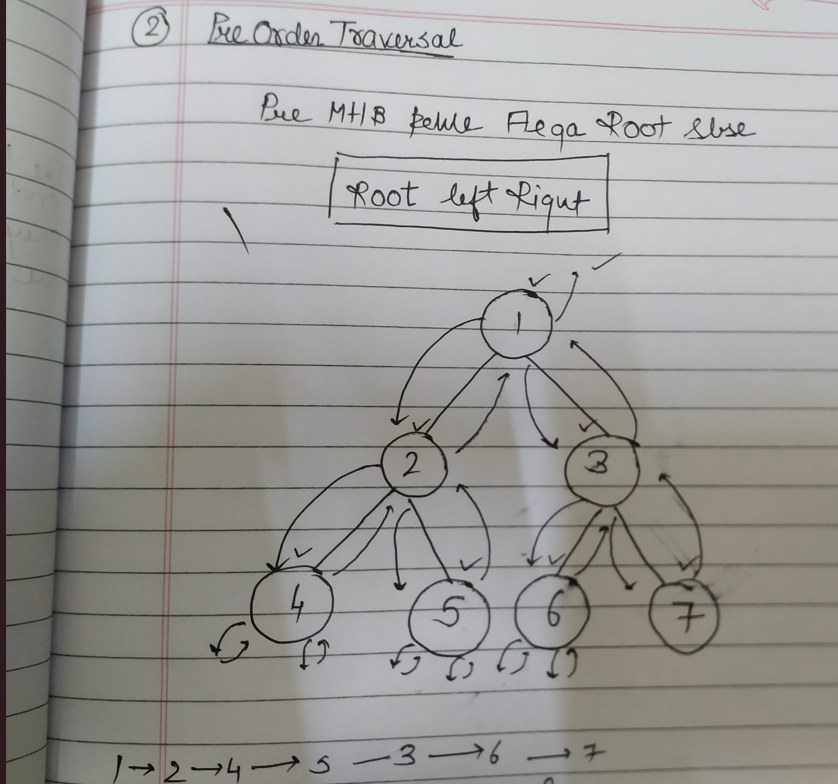 ② Pre Order Traversal
Pre MtlB pehle Aega Root sbse
Root left Right
1
2 3
4 5 6 7
1 → 2 → 4 → 5 — 3 → 6 → 7